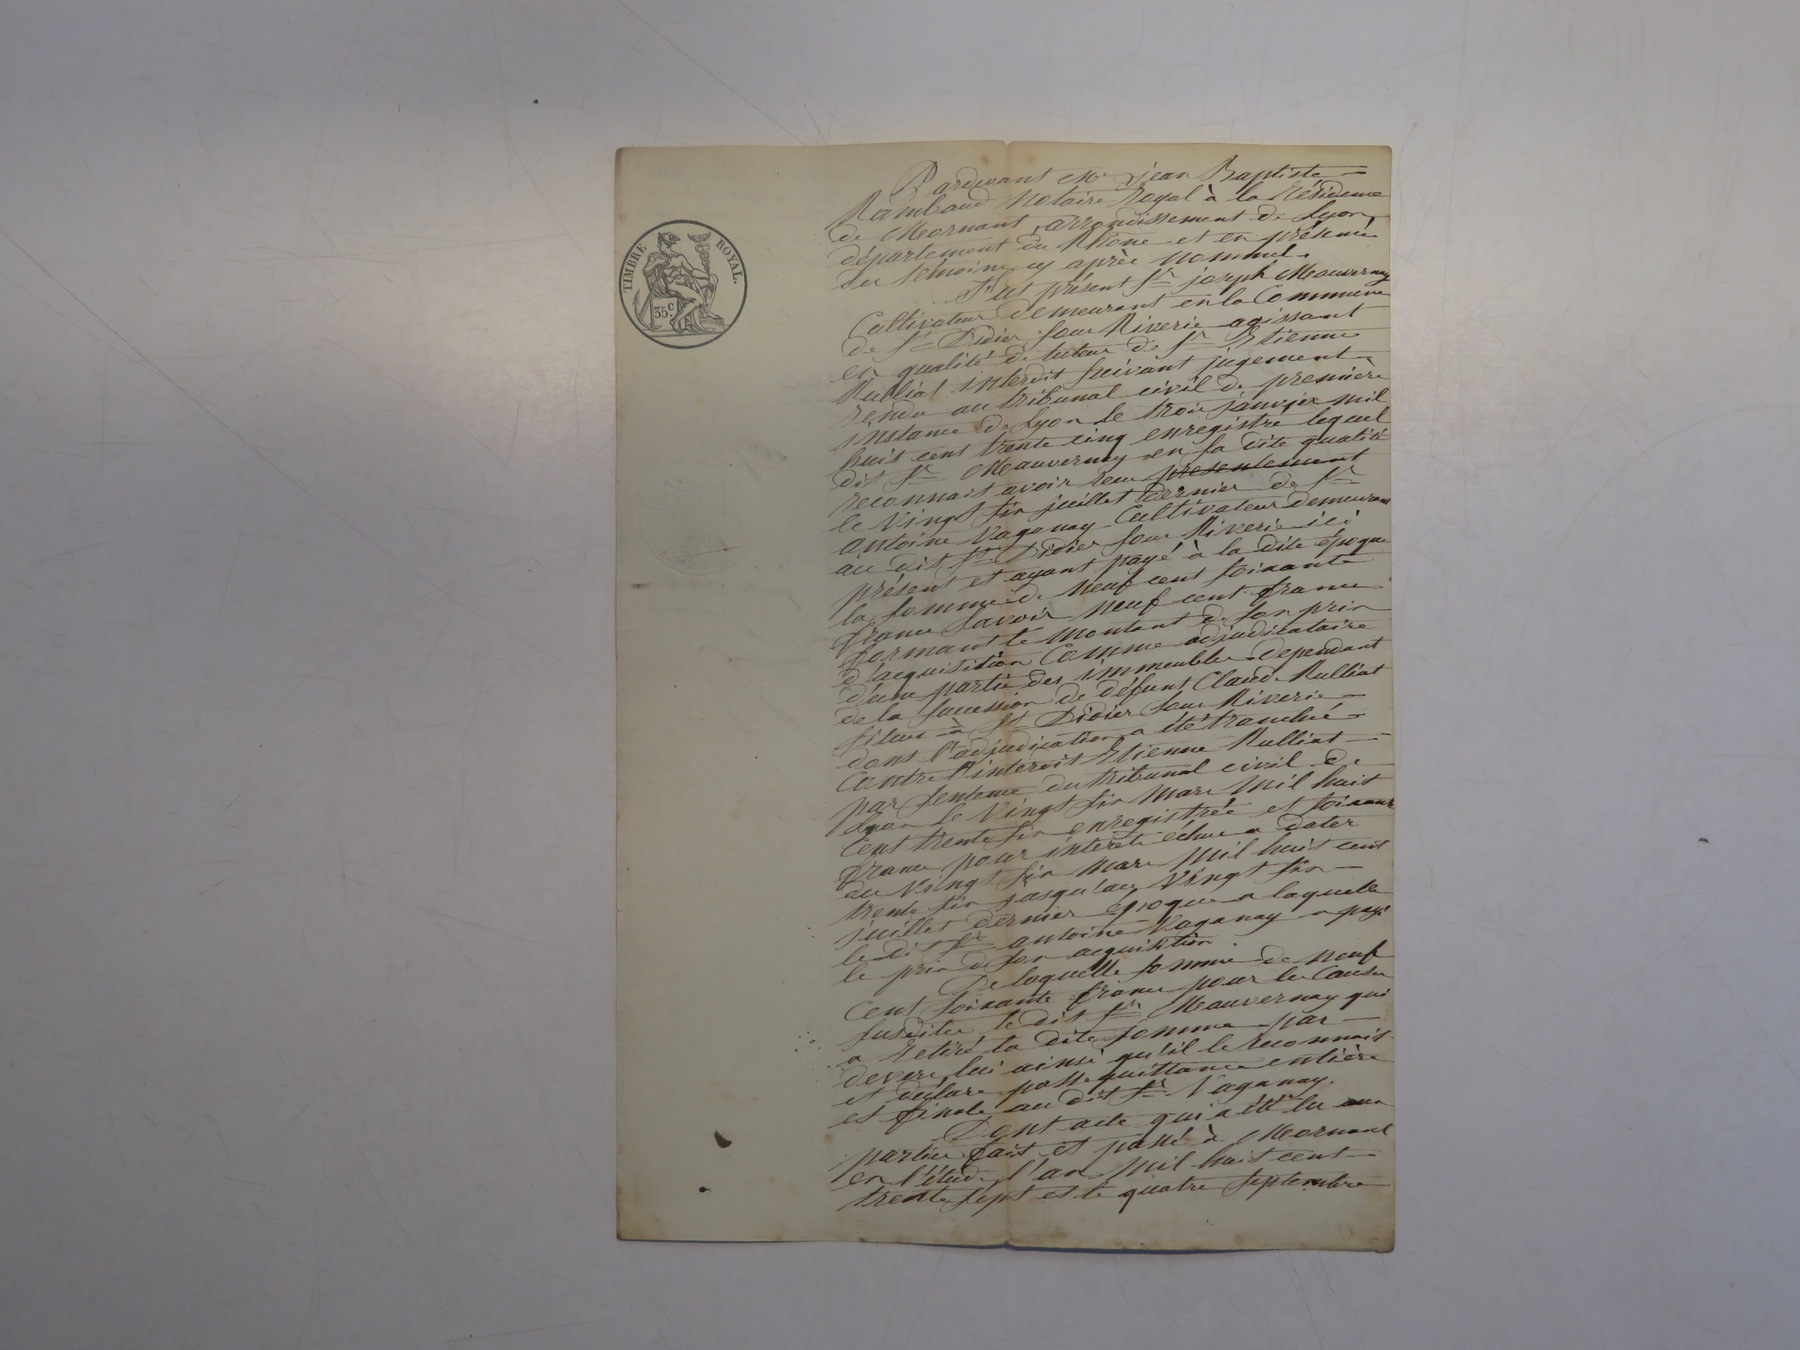 TIMBRE ROYAL.
35c.
Pardevant Me jean Baptiste
Rambaud Notaire Royal à la Résidence
de Mornant, arrondissement de Lyon,
département du Rhône et en présence
des témoins cy après nommés.
Fut présent Sr joseph Mauvernay
Cultivateur demeurant en la Commune
de St Didier sous Riverie agissant
en qualité de tuteur de Sr Etienne
Rulliat interdit suivant jugement
rendu au tribunal civil de première
instance de Lyon le trois janvier mil
huit cent trente cinq enregistré lequel
dit Sr Mauvernay en sa dite qualité
reconnait avoir reçu presentement
le Vingt six juillet dernier de Sr
antoine Vaganay Cultivateur demeurant
au dit St Didier sous Riverie ici
présent et ayant payé à la dite époque
la somme de neuf cent soixante
francs savoir neuf cent francs
formant le montant de son prix
d'acquisition Comme adjudicataire
d'une partie des immeubles dependant
de la succession de défunt Claude Rulliat
situés à St Didier sous Riverie
dont l'adjudication a été tranchée
Contre l'interdit Etienne Rulliat
par sentence du tribunal civil de
Lyon le Vingt six mars mil huit
Cent trente six enregistrée et soixante
francs pour intérêts échus a dater
du Vingt six mars mil huit cent
trente six jusqu'au Vingt six
juillet dernier époque a laquelle
le dit Sr antoine Vaganay a payé
le prix de son acquisition.
De laquelle somme de neuf
Cent soixante francs pour les Causes
susdites le dit Sr Mauvernay qui
a retiré la dite somme par
devers lui ainsi qu'il le reconnait
et déclare passe quittance entière
et finale au dit Sr Vaganay.
Dont acte qui a été lu aux
parties fait et passé à Mornant
en l'étude l'an mil huit cent
trente sept et le quatre septembre